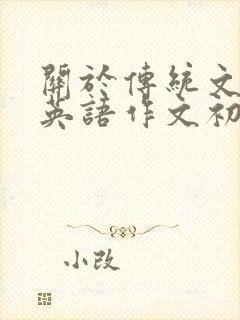 關於傳統文
英語作文初
小改